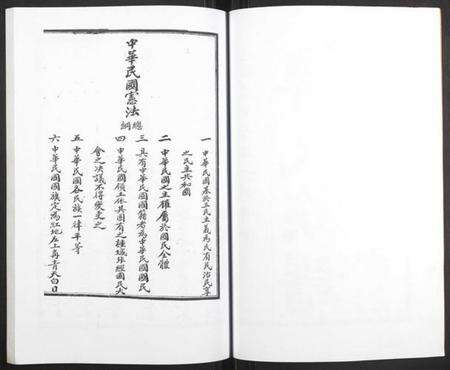 中華民國憲法
總綱
一 中華民國基於三民主義為民有民治民享
之民主共和國
二 中華民國之主權屬於國民全體
三 具有中華民國國籍者為中華民國國民
四 中華民國領土依其固有之疆域非經國民大
會之決議不得變更之
五 中華民國各民族一律平等
六 中華民國國旗定為紅地左上角青天白日